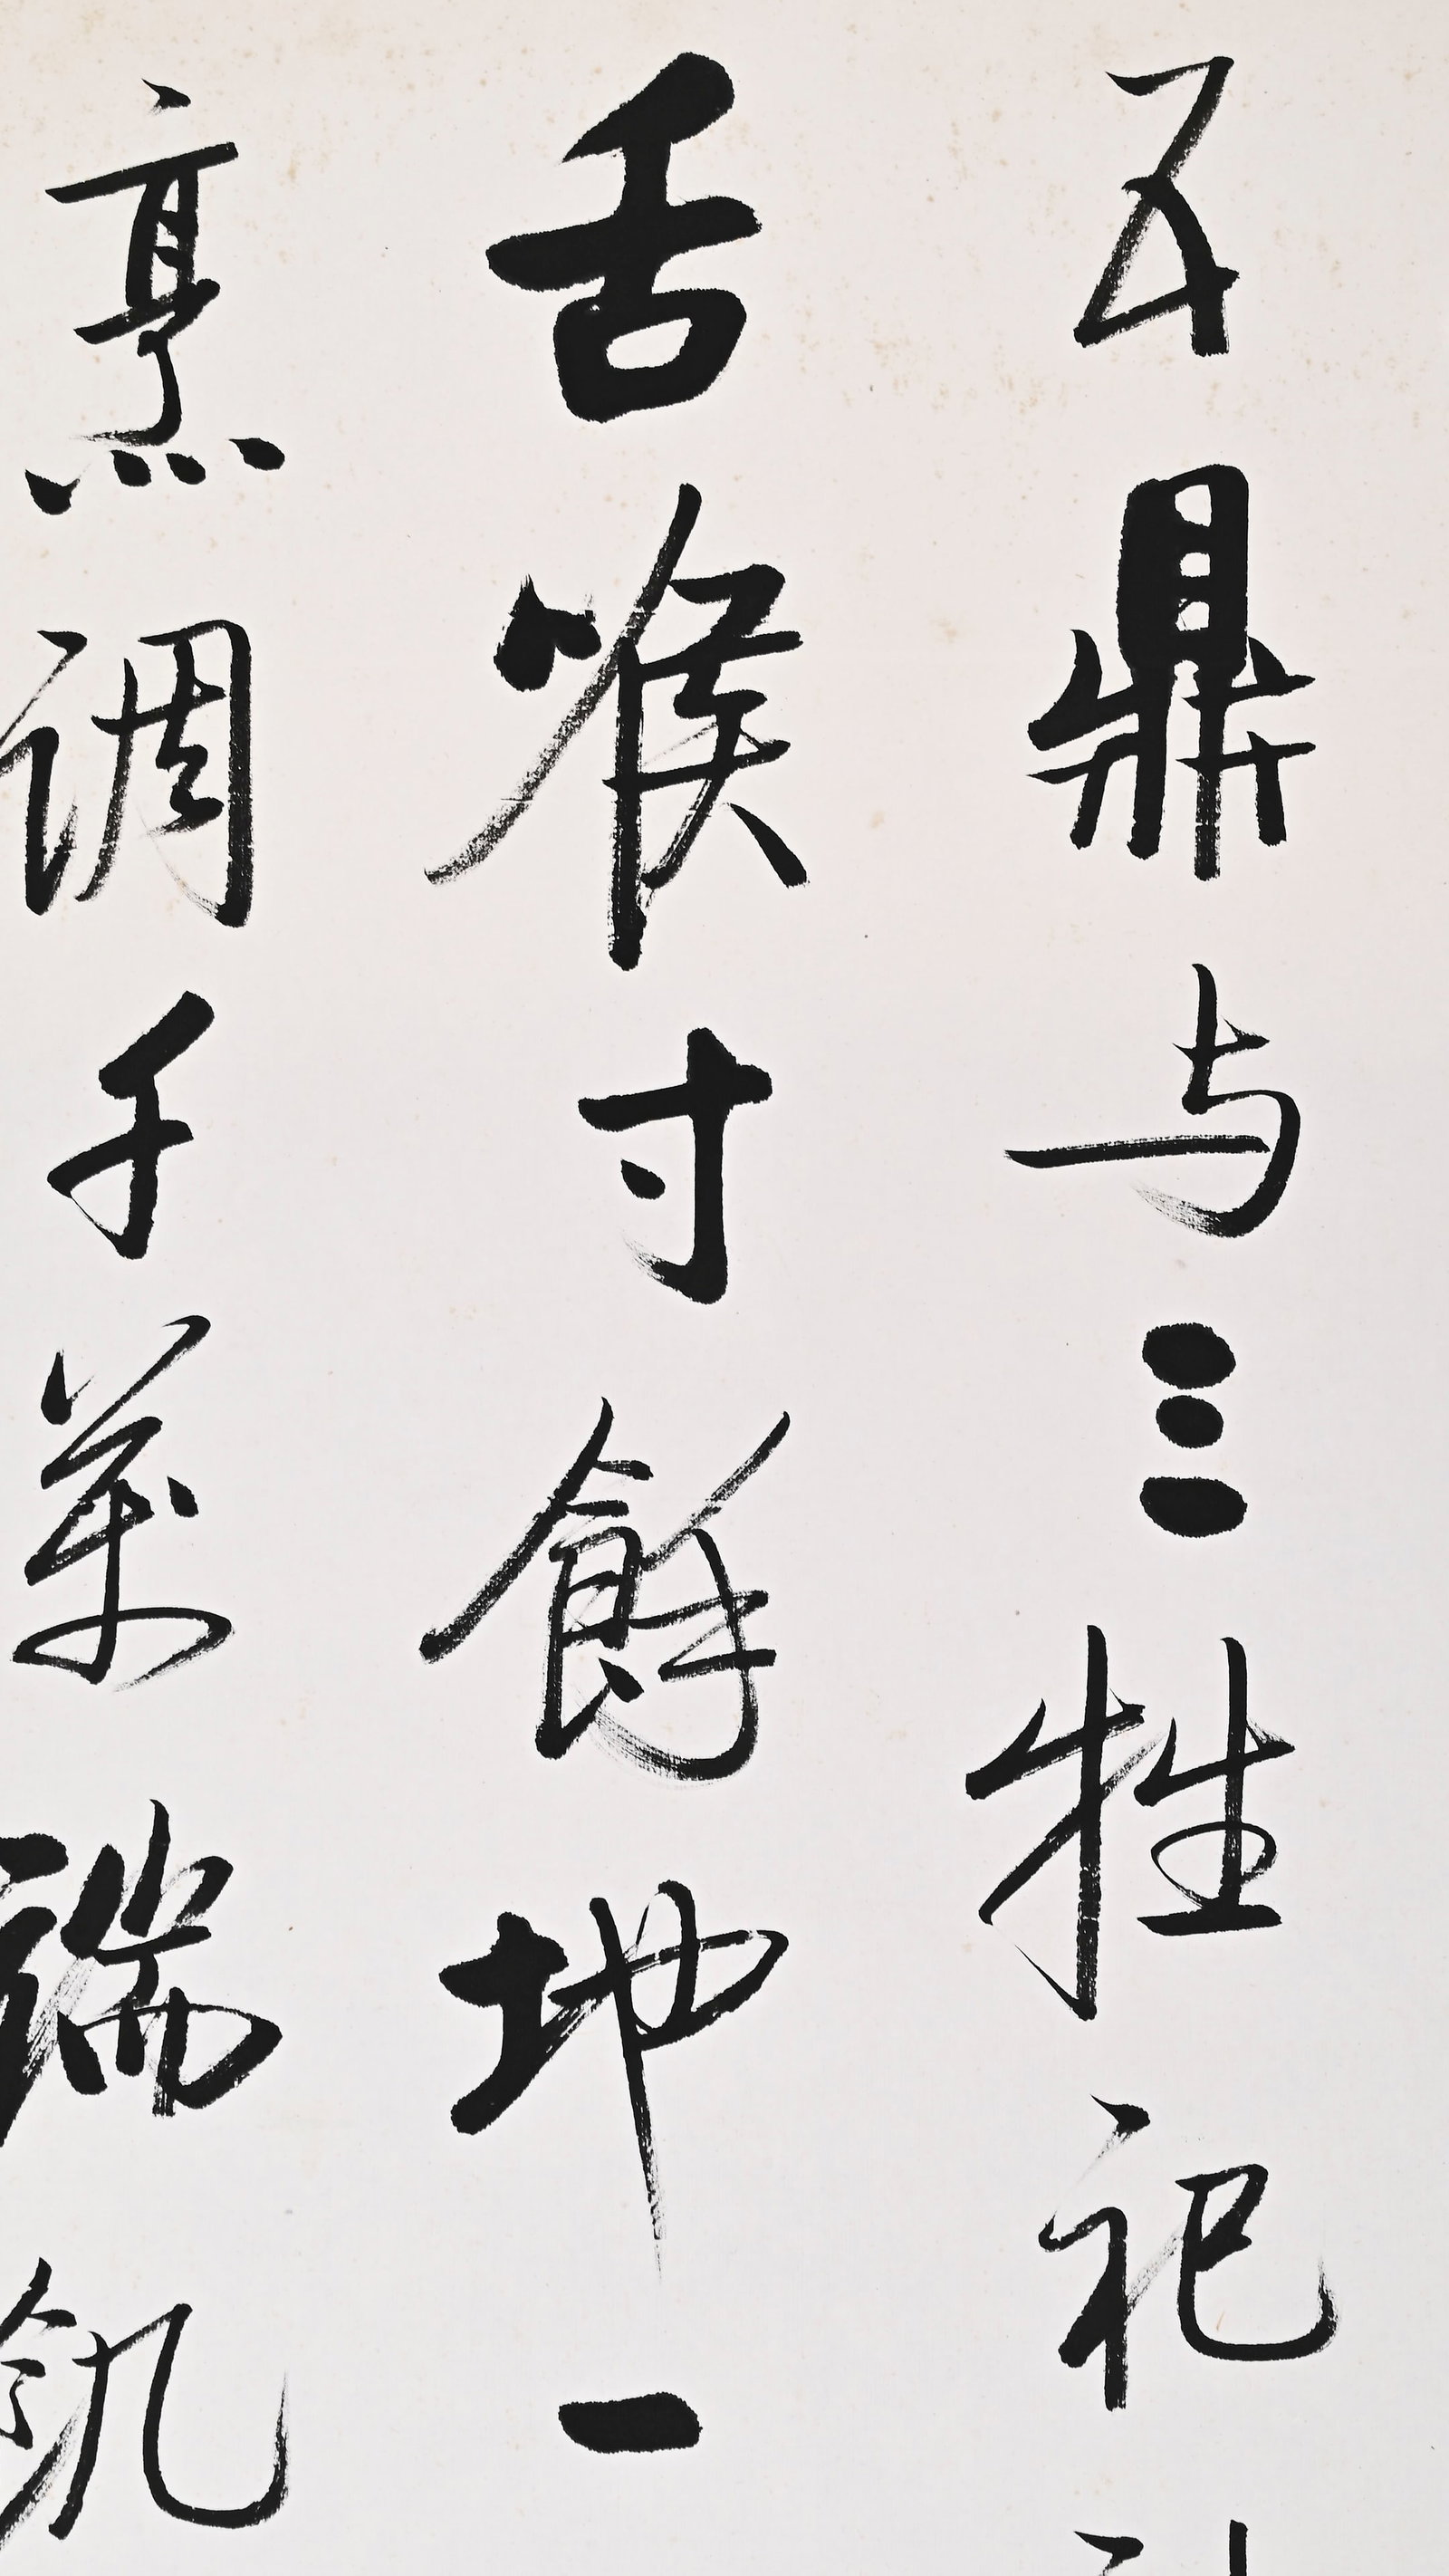 五鼎与三牲祀
舌喉寸餘地一
烹調千萬端飢